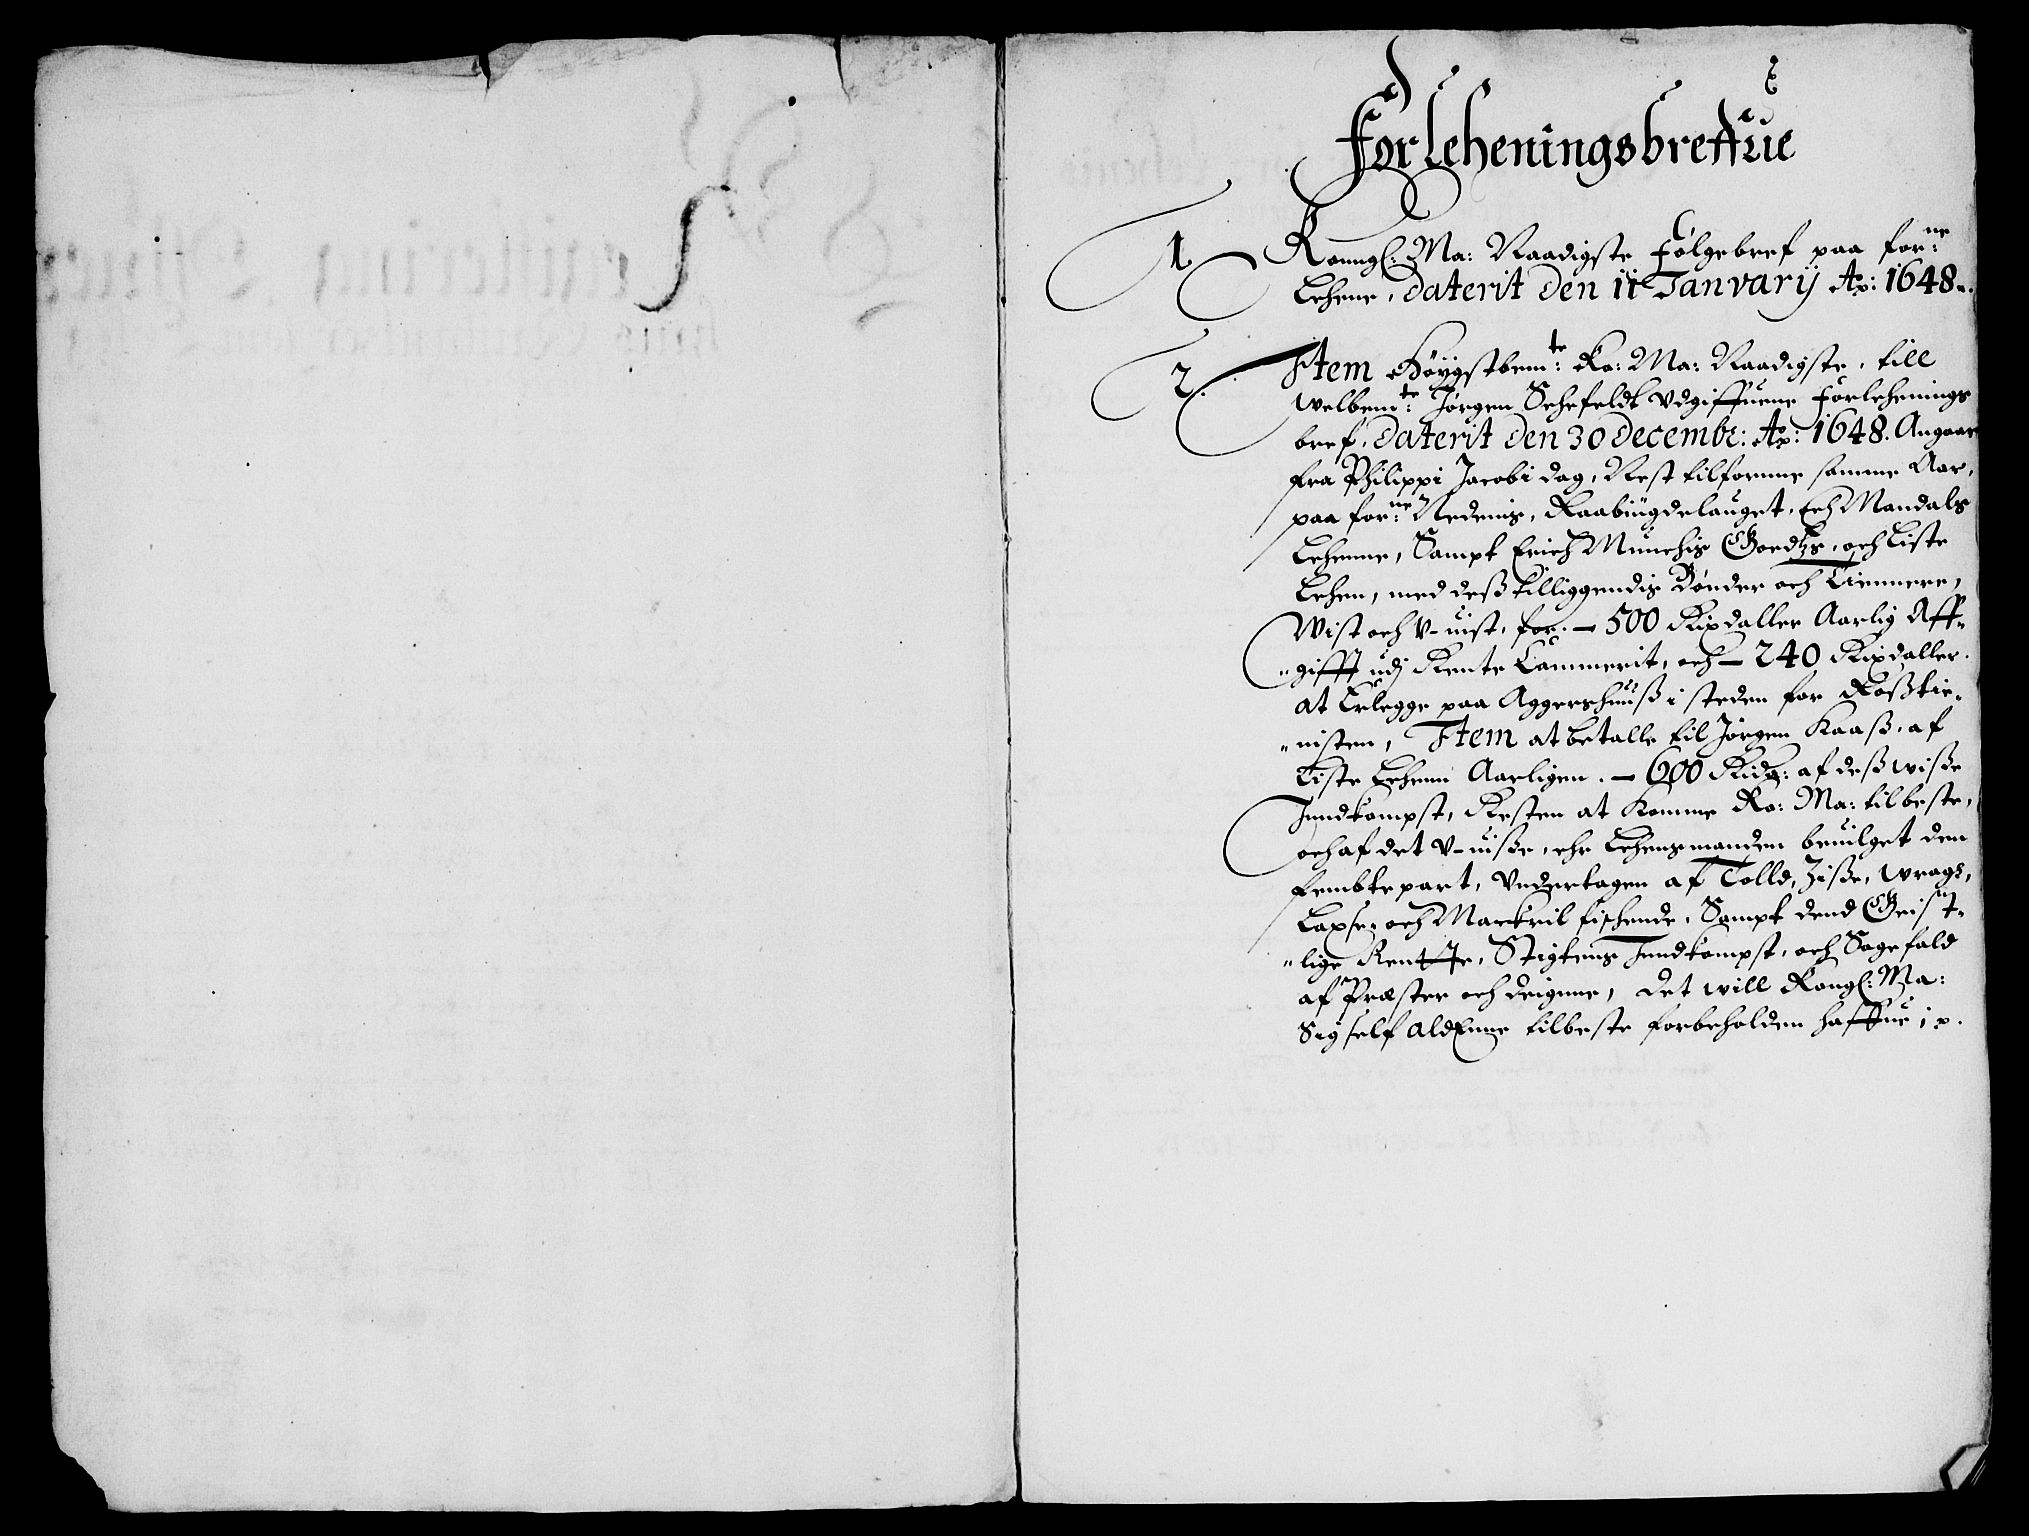 Forleheningsbreffue
1 Konngl: Ma: Naadigste Følgebref paa forne:
Lehene, daterit den 11 Janvarij Ao: 1648.
2. Item Høygstbemte: Ko: Ma: Naadigste, till
Welbemte: Jørgen Sehefeldt Vdgiffuene Forlehenings
bref, daterit den 30 decembr: Ao: 1648. Angaar
fra Philippi Jacobi dag, Nest tilfornne samme Aar,
paa forne: Nedenis, Raabiugdelauget, och Mandals
Lehenne, Sampt Erich Munchis Goedtzs, och Liste
Lehen, med deß tilliggendis Bønder och Tiennere,
Wist och V-uist, for. – 500 Rixdaller Aarlig Aff-
"gifft udj Rente Cammerit, och – 240 Rixdaller.
At Erlegge paa Aggershuuß i steden for Roßtie-
"nisten, Item at betalle til Jørgen Kaaß, af
Liste Lehenn Aarligen. – 600 Rixdr: af deß wiße
Inndkompst, Resten at komme Ko: Ma: til beste,
och af det V-uiße, ehr Lehensmanden beuilget den
fembte part, Vndertagen af Told, Ziße, Wragh,
Laxse, och Mackril fischende, Sampt dend Geist-
"lige Rentte, Stigtens Inndkompst, och Sagefald
af Præster och deignne, det will Kongl: Ma:
Sig self aldEnne tilbeste forbeholden haffue i p.